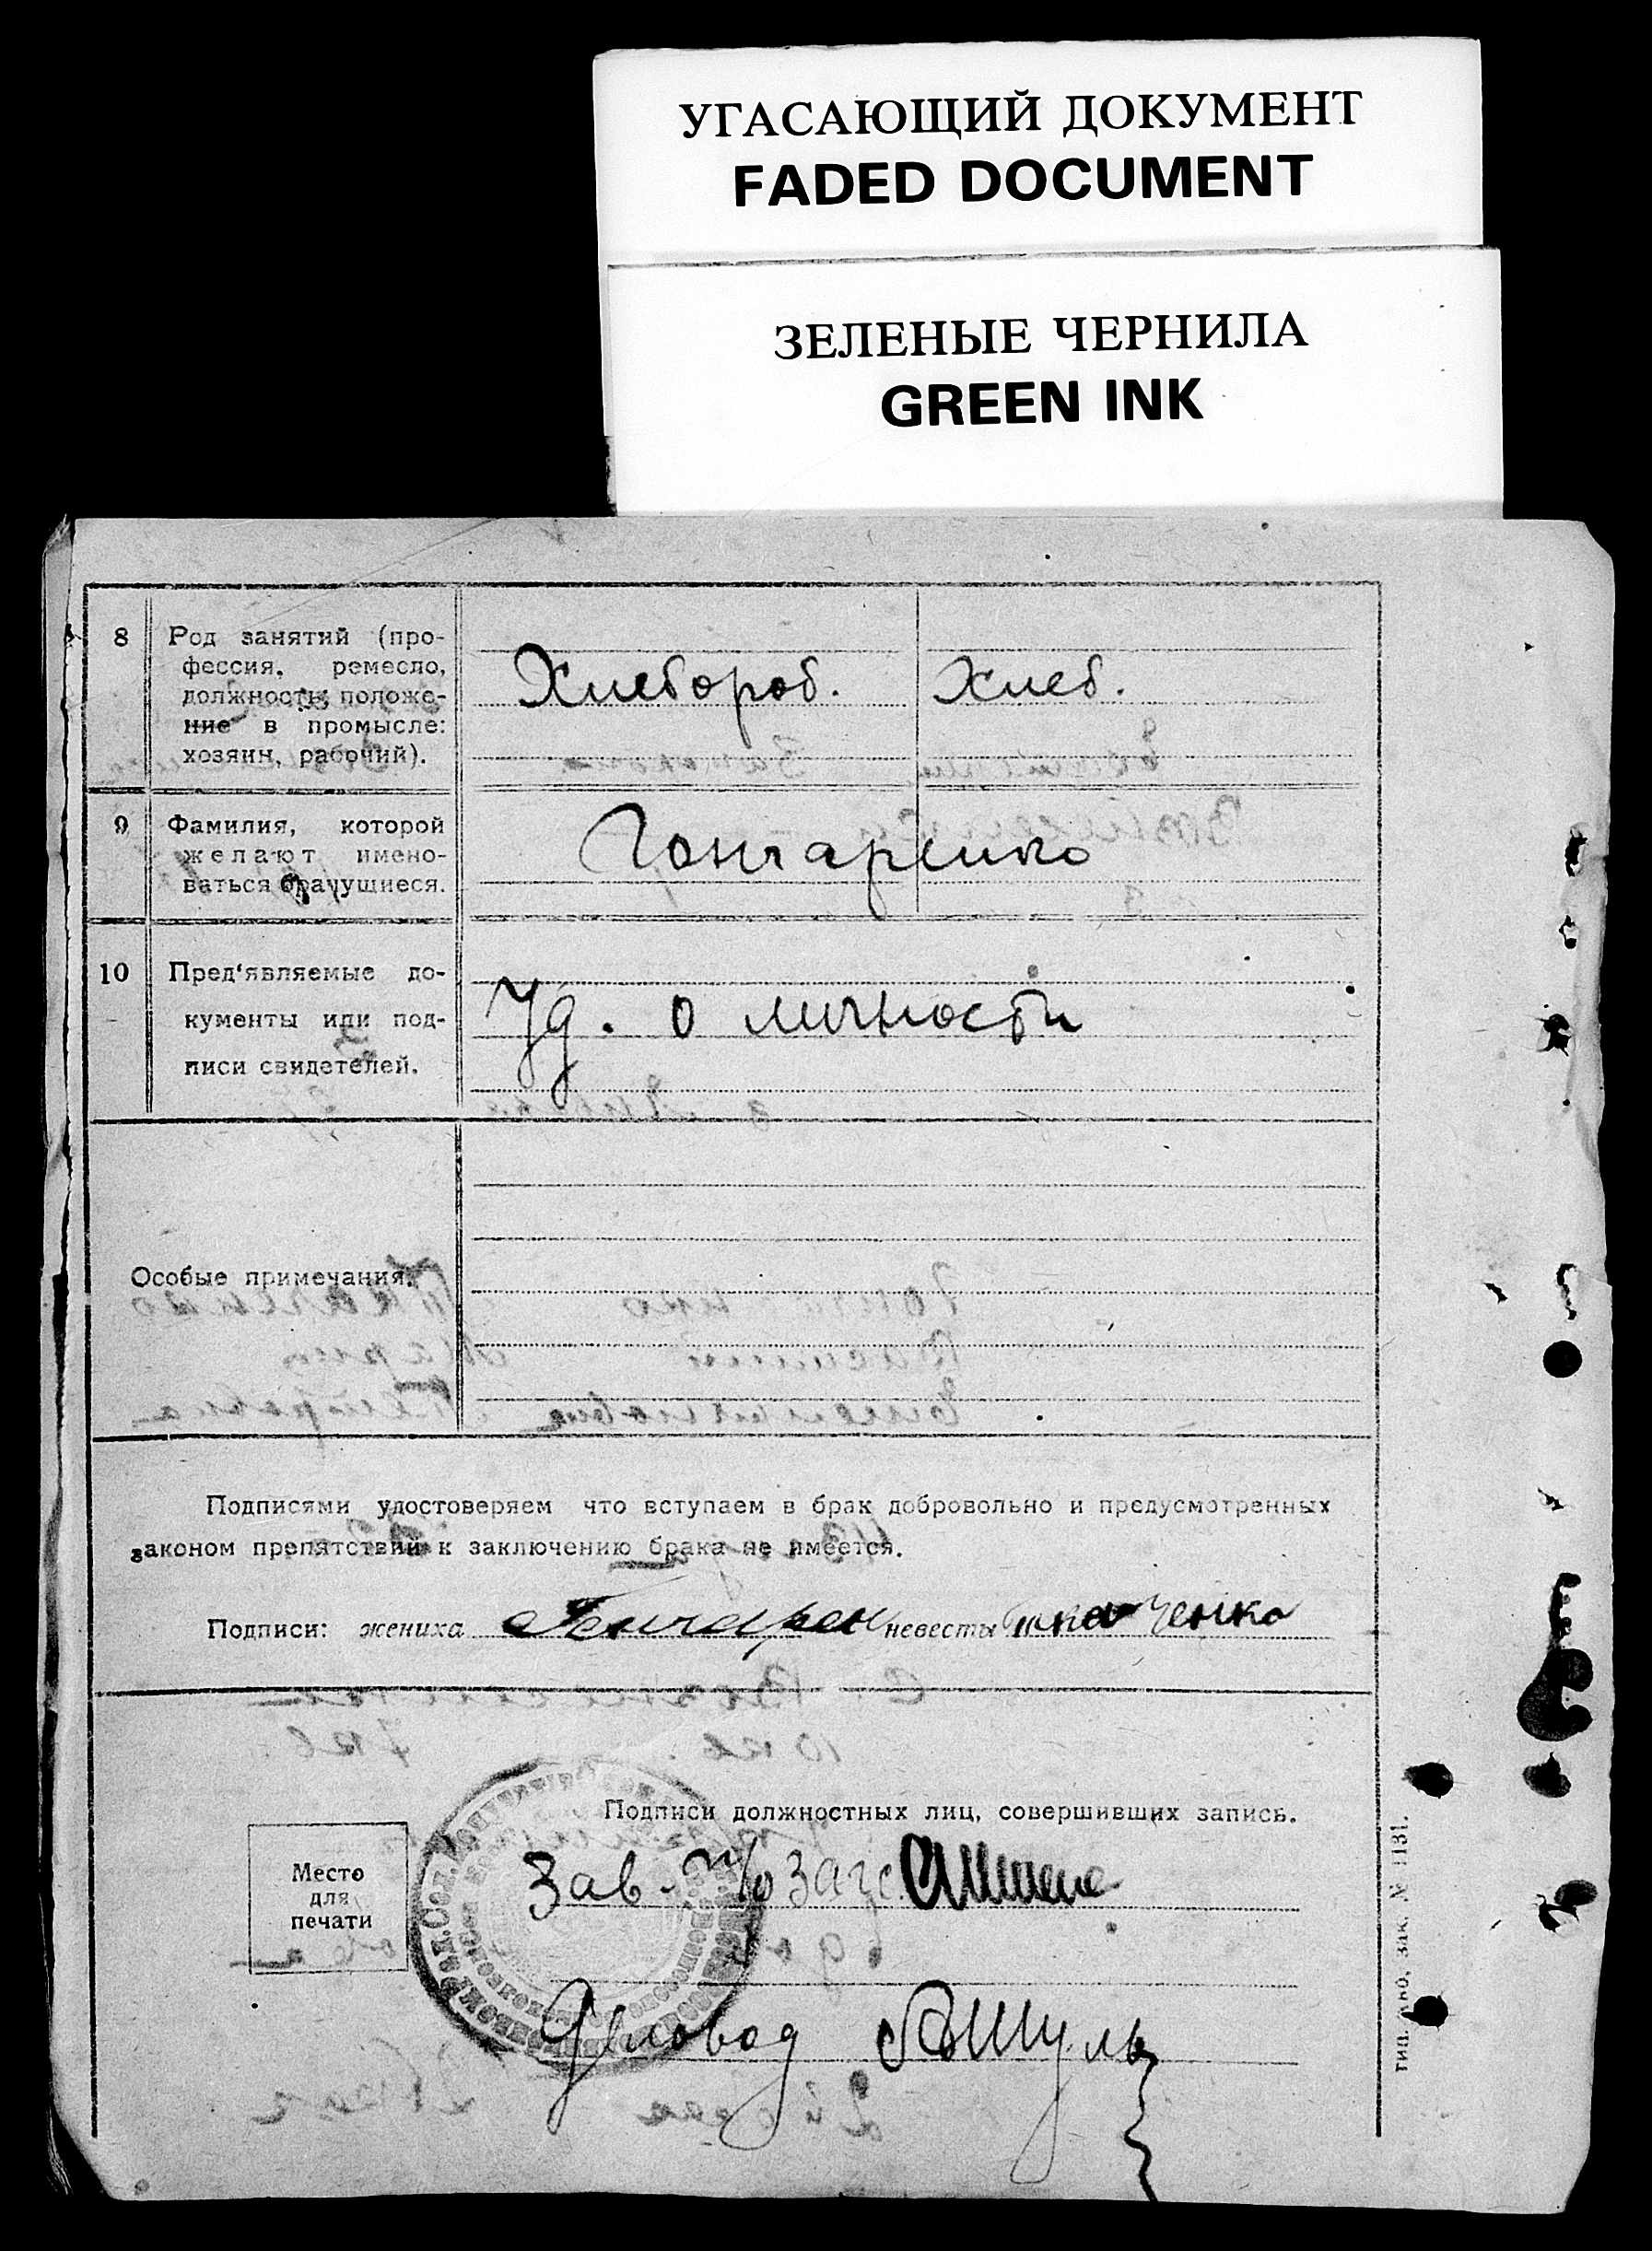 УГАСАЮЩИЙ ДОКУМЕНТ
FADED DOCUMENT
ЗЕЛЕНЫЕ ЧЕРНИЛА
GREEN INK
8 Род занятий (про-
фессия, ремесло,
должность, положе-
ние в промысле:
хозяин, рабочий).
Хлебороб. Хлеб.
9 Фамилия, которой
желают имено-
ваться брачущиеся.
Гончаренко
10 Пред'являемые до-
кументы или под-
писи свидетелей.
Уд. о личности
Особые примечания.
Подписями удостоверяем что вступаем в брак добровольно и предусмотренных
законом препятствий к заключению брака не имеется.
Подписи: жениха Гончарен невесты Ткаченко
Подписи должностных лиц, совершивших запись.
Место
для
печати
Зав. п/о Загс
Деловод
зак. № 1131.